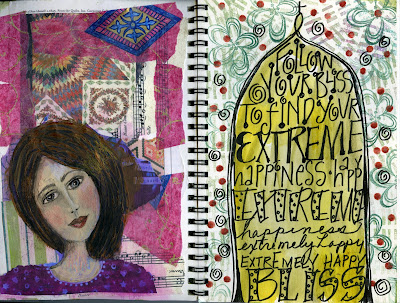 FOLLOW
YOUR BLISS
TO FIND YOUR
EXTREME
happiness . happ
EXTREME
happiness
extremely happy
EXTREMELY HAPPY
BLISS